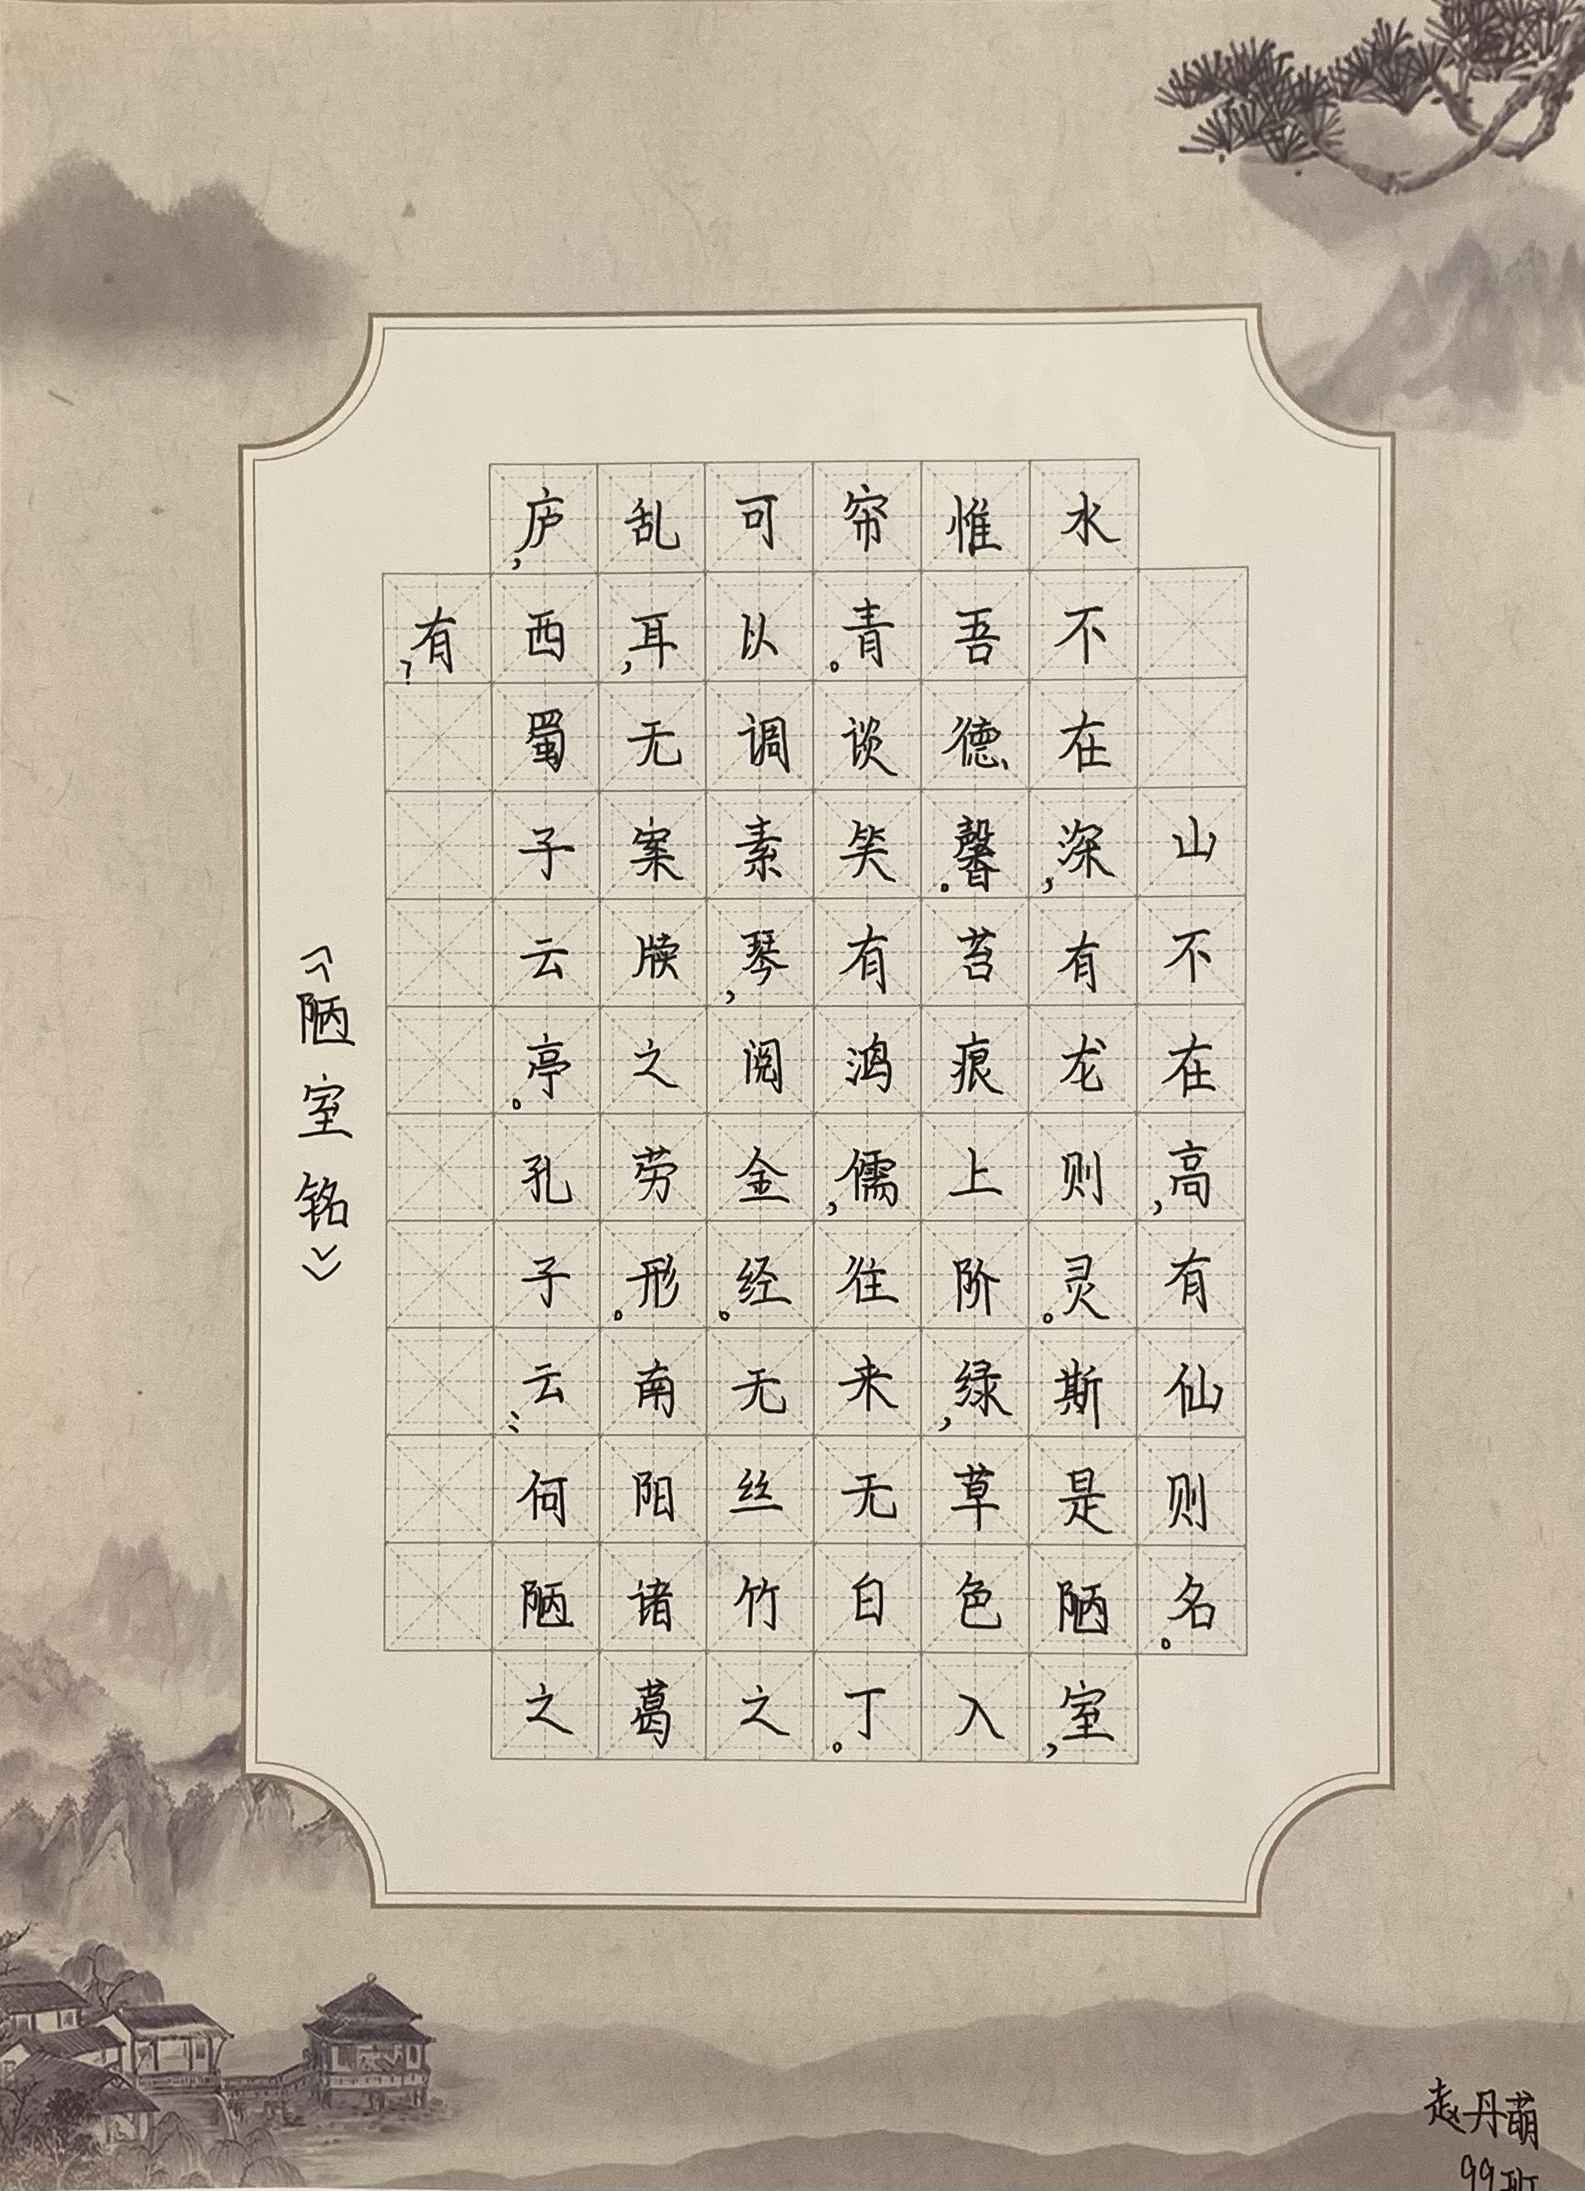 山不在高，有仙则名。
水不在深，有龙则灵。斯是陋室，
惟吾德馨。苔痕上阶绿，草色入
帘青。谈笑有鸿儒，往来无白丁。
可以调素琴，阅金经。无丝竹之
乱耳，无案牍之劳形。南阳诸葛
庐，西蜀子云亭。孔子云：何陋之
有？
《陋室铭》
赵丹萌
99班